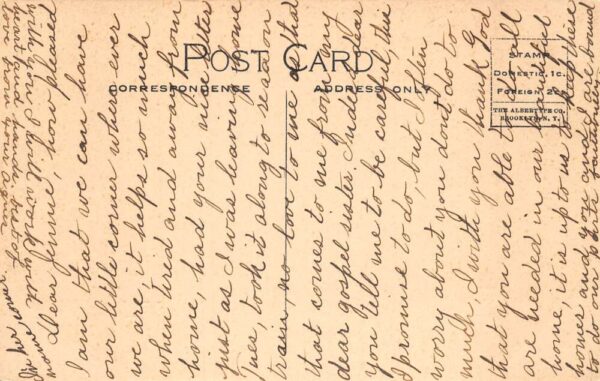 POST CARD
CORRESPONDENCE
ADDRESS ONLY
STAMP
DOMESTIC, 1c.
FOREIGN, 2cs.
THE ALBERTYPE CO.
BROOKLYN, N. Y.
Dear Jennie, how pleased
I am that we can have
our little corner where ever
we are it helps so much
when tired and away from
home, had your nice letter
just as I was leaving home
Tues, took it along to read on
train, no love to me as that
that comes to me from my
dear gospel sister. Indeed dear
you tell me to be careful
I promise to do, but I often
worry about you dont do to
much, I with you thank God
that you are able to all
are needed in our beautiful
home, it is up to us to keep these
homes and you and I are bound
to do our
with you. I will work with
heart and hands best of
love from yours again